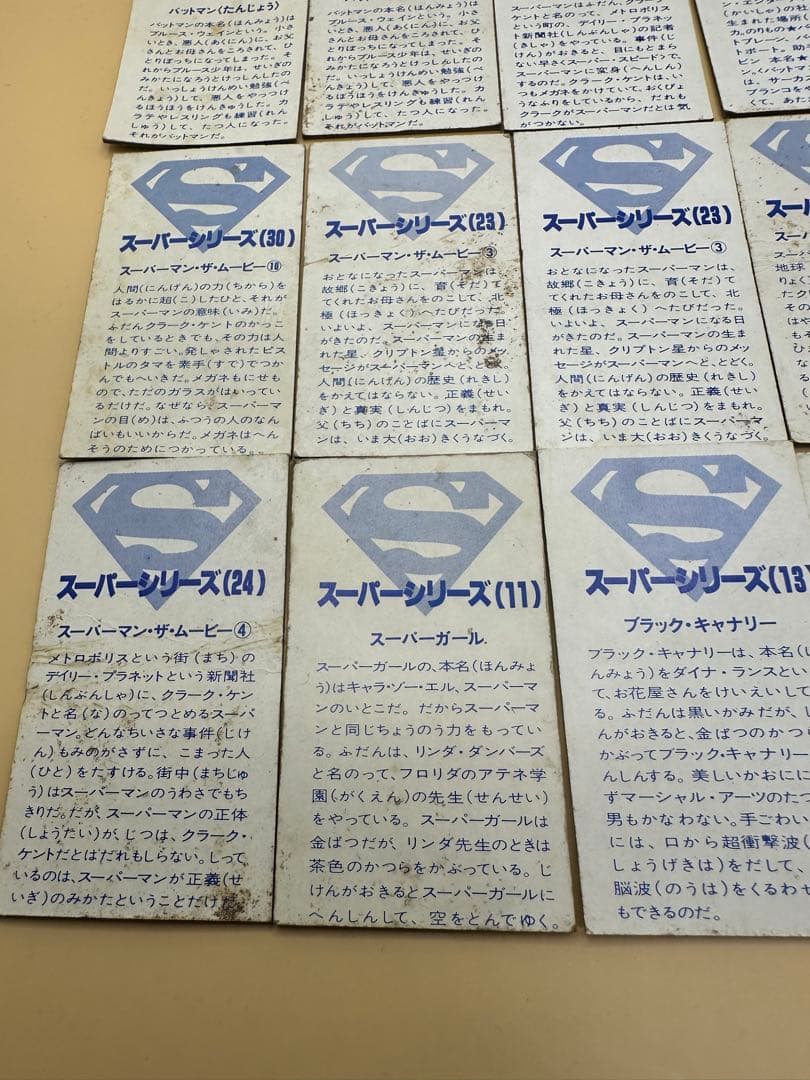 バットマン〈たんじょう〉
バットマンの本名(ほんみょう)は
ブルース・ウェインという。小さ
いとき、悪人(あくにん)に、お父
さんとお母さんをころされて、ひ
とりぼっちになってしまった。そ
れからブルース少年は、せいぎの
みかたになろうとけっしんしたの
だ。いっしょうけんめい勉強(べ
んきょう)して、悪人をやっつけ
るほうほうをけんきゅうした。カ
ラテやレスリングも練習(れん
しゅう)して、たつ人になった。
それがバットマンだ。
バットマンの本名(ほんみょう)は
ブルース・ウェインという。小さ
いとき、悪人(あくにん)に、お父
さんとお母さんをころされて、ひ
とりぼっちになってしまった。そ
れからブルース少年は、せいぎの
みかたになろうとけっしんしたの
だ。いっしょうけんめい勉強(べ
んきょう)して、悪人をやっつけ
るほうほうをけんきゅうした。カ
ラテやレスリングも練習(れん
しゅう)して、たつ人になった。
それがバットマンだ。
スーパーマンはふだん、クラーク・
ケントと名のって、メトロポリス
という町の、デイリー・プラネッ
ト新聞社(しんぶんしゃ)の記者
(きしゃ)をやっている。事件(じ
けん)がおきると、目にもとまら
ない早さ〈スーパー・スピード〉で、
スーパーマンに変身(へんしん)
するのだ。クラーク・ケントは、い
つもメガネをかけていて、おくびょ
うなふりをしているから、だれも
クラークがスーパーマンだとは気
がつかない。
スーパーシリーズ(30)
スーパーマン・ザ・ムービー⑩
人間(にんげん)の力(ちから)を
はるかに超(こ)したひと、それが
スーパーマンの意味(いみ)だ。
ふだんクラーク・ケントのかっこ
をしているときでも、その力は人
間よりすごい。発しゃされたピス
トルのタマを素手(すで)でつか
んでもへいきだ。メガネもにせも
ので、ただのガラスがはいってい
るだけだ。なぜなら、スーパーマン
の目(め)は、ふつうの人のなん
ばいもいいからだ。メガネはへん
そうのためにつかっている。
スーパーシリーズ(23)
スーパーマン・ザ・ムービー③
おとなになったスーパーマンは、
故郷(こきょう)に、育(そだ)て
てくれたお母さんをのこして、北
極(ほっきょく)へたびだった。
いよいよ、スーパーマンになる日
がきたのだ。スーパーマンの生ま
れた星、クリプトン星からのメッ
セージがスーパーマンへと、とどく。
人間(にんげん)の歴史(れきし)
をかえてはならない。正義(せい
ぎ)と真実(しんじつ)をまもれ。
父(ちち)のことばにスーパーマ
ンは、いま大(おお)きくうなづく。
スーパーシリーズ(23)
スーパーマン・ザ・ムービー③
おとなになったスーパーマンは、
故郷(こきょう)に、育(そだ)て
てくれたお母さんをのこして、北
極(ほっきょく)へたびだった。
いよいよ、スーパーマンになる日
がきたのだ。スーパーマンの生ま
れた星、クリプトン星からのメッ
セージがスーパーマンへと、とどく。
人間(にんげん)の歴史(れきし)
をかえてはならない。正義(せい
ぎ)と真実(しんじつ)をまもれ。
父(ちち)のことばにスーパーマ
ンは、いま大(おお)きくうなづく。
スーパーシリーズ(24)
スーパーマン・ザ・ムービー④
メトロポリスという街(まち)の
デイリー・プラネットという新聞社
(しんぶんしゃ)に、クラーク・ケン
トと名(な)のってつとめるスーパ
ーマン。どんなちいさな事件(じけ
ん)もみのがさずに、こまった人
(ひと)をたすける。街中(まちじゅ
う)はスーパーマンのうわさでもち
きりだ。だが、スーパーマンの正体
(しょうたい)が、じつは、クラーク・
ケントだとはだれもしらない。しって
いるのは、スーパーマンが正義(せ
いぎ)のみかたということだけだ。
スーパーシリーズ(11)
スーパーガール
スーパーガールの、本名(ほんみょ
う)はキャラ・ゾー・エル、スーパーマ
ンのいとこだ。だからスーパーマ
ンと同じちょうのう力をもってい
る。ふだんは、リンダ・ダンバーズ
と名のって、フロリダのアテネ学
園(がくえん)の先生(せんせい)
をやっている。スーパーガールは
金ぱつだが、リンダ先生のときは
茶色のかつらをかぶっている。じ
けんがおきるとスーパーガールに
へんしんして、空をとんでゆく。
スーパーシリーズ(13)
ブラック・キャナリー
ブラック・キャナリーは、本名(ほ
んみょう)をダイナ・ランスとい
て、お花屋さんをけいえいして
る。ふだんは黒いかみだが、じ
んがおきると、金ぱつのかつら
かぶってブラック・キャナリー
んしんする。美しいかおにに
ずマーシャル・アーツのたつ
男もかなわない。手ごわい
には、口から超衝撃波(
しょうげきは)をだして、
脳波(のうは)をくるわせ
もできるのだ。